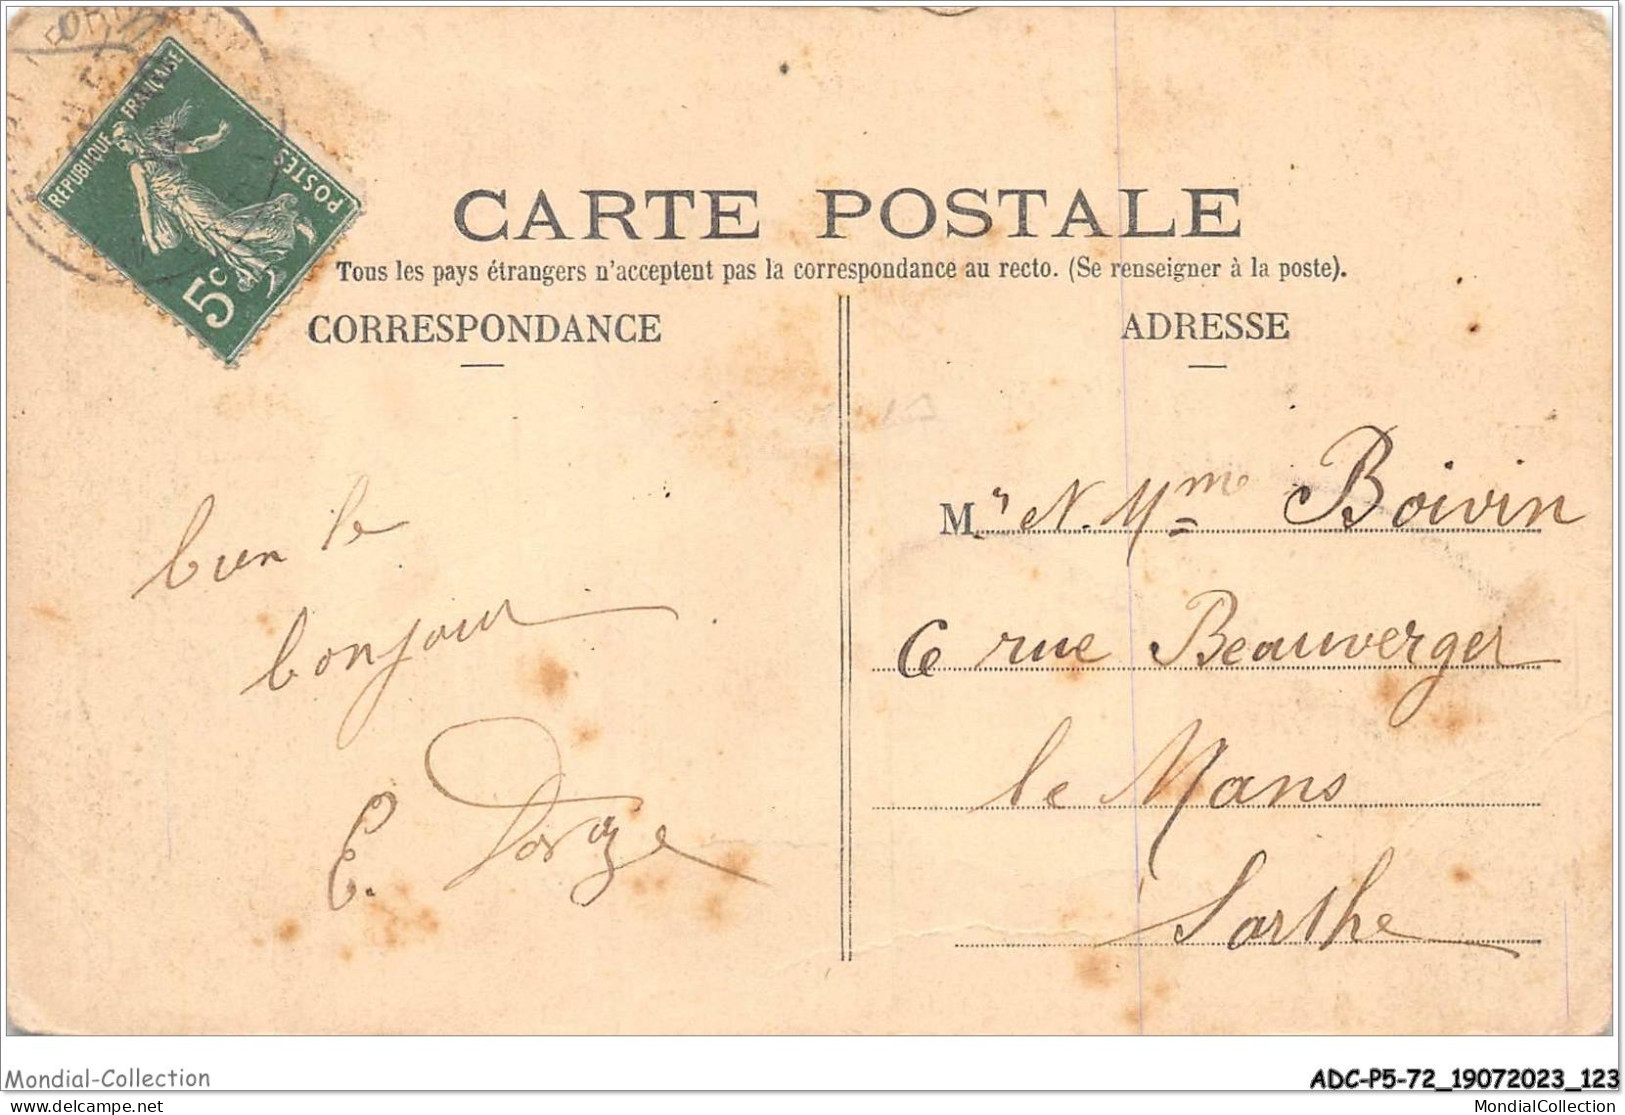 REPUBLIQUE FRANÇAISE
POSTES
5c
CARTE POSTALE
Tous les pays étrangers n'acceptent pas la correspondance au recto. (Se renseigner à la poste).
CORRESPONDANCE
ADRESSE
bien le
bonjour
E.
Mr N. Mme Boivin
6 rue Beauverger
le Mans
Sarthe
Mondial-Collection
ADC-P5-72_19072023_123
delcampe.net
MondialCollection